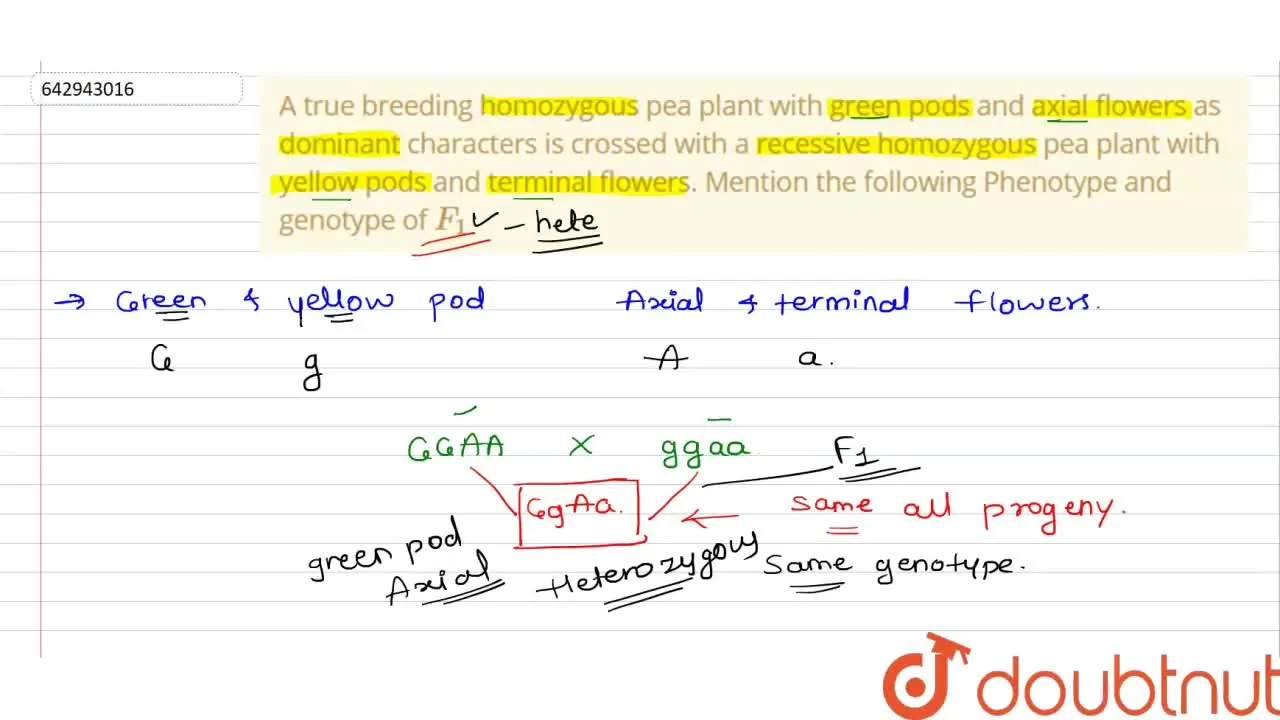 642943016
A true breeding homozygous pea plant with green pods and axial flowers as
dominant characters is crossed with a recessive homozygous pea plant with
yellow pods and terminal flowers. Mention the following Phenotype and
genotype of F₁ ✓ - hete
→ Green & yellow pod Axial & terminal flowers.
G g A a.
GGAA X ggaa F1
GgAa. ← same all progeny.
green pod
Axial Heterozygous same genotype.
doubtnut